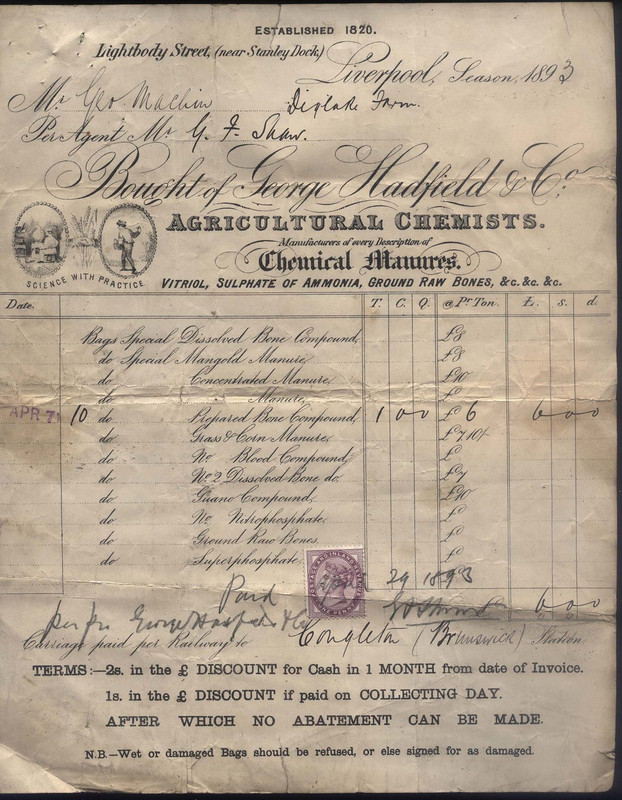 ESTABLISHED 1820.
Lightbody Street, (near Stanley Dock,)
Liverpool, Season, 1893
Mr Geo Machin Diglake Farm.
Per Agent Mr G. F. Shaw.
Bought of George Hadfield & Co.
AGRICULTURAL CHEMISTS.
Manufacturers of every Description of
Chemical Manures.
SCIENCE WITH PRACTICE
VITRIOL, SULPHATE OF AMMONIA, GROUND RAW BONES, &c. &c. &c.
Date. T. C. Q. @ Pr Ton. £. s. d.
Bags Special Dissolved Bone Compound, £8
do Special Mangold Manure, £8
do Concentrated Manure, £10
do Manure, £
APR 7 10 do Prepared Bone Compound, 1 0 0 £ 6 6 0 0
do Grass & Corn Manure, £7 10/-
do No Blood Compound, £
do No 2 Dissolved Bone do. £7
do Guano Compound, £10
do No Nitrophosphate, £
do Ground Raw Bones. £
do Superphosphate, £
POSTAGE AND INLAND REVENUE
ONE PENNY
Paid April 29 1893
per pro George Hadfield & Co 6 0 0
Carriage paid per Railway to Congleton (Brunswick) Station
TERMS:—2s. in the £ DISCOUNT for Cash in 1 MONTH from date of Invoice.
1s. in the £ DISCOUNT if paid on COLLECTING DAY.
AFTER WHICH NO ABATEMENT CAN BE MADE.
N.B.—Wet or damaged Bags should be refused, or else signed for as damaged.